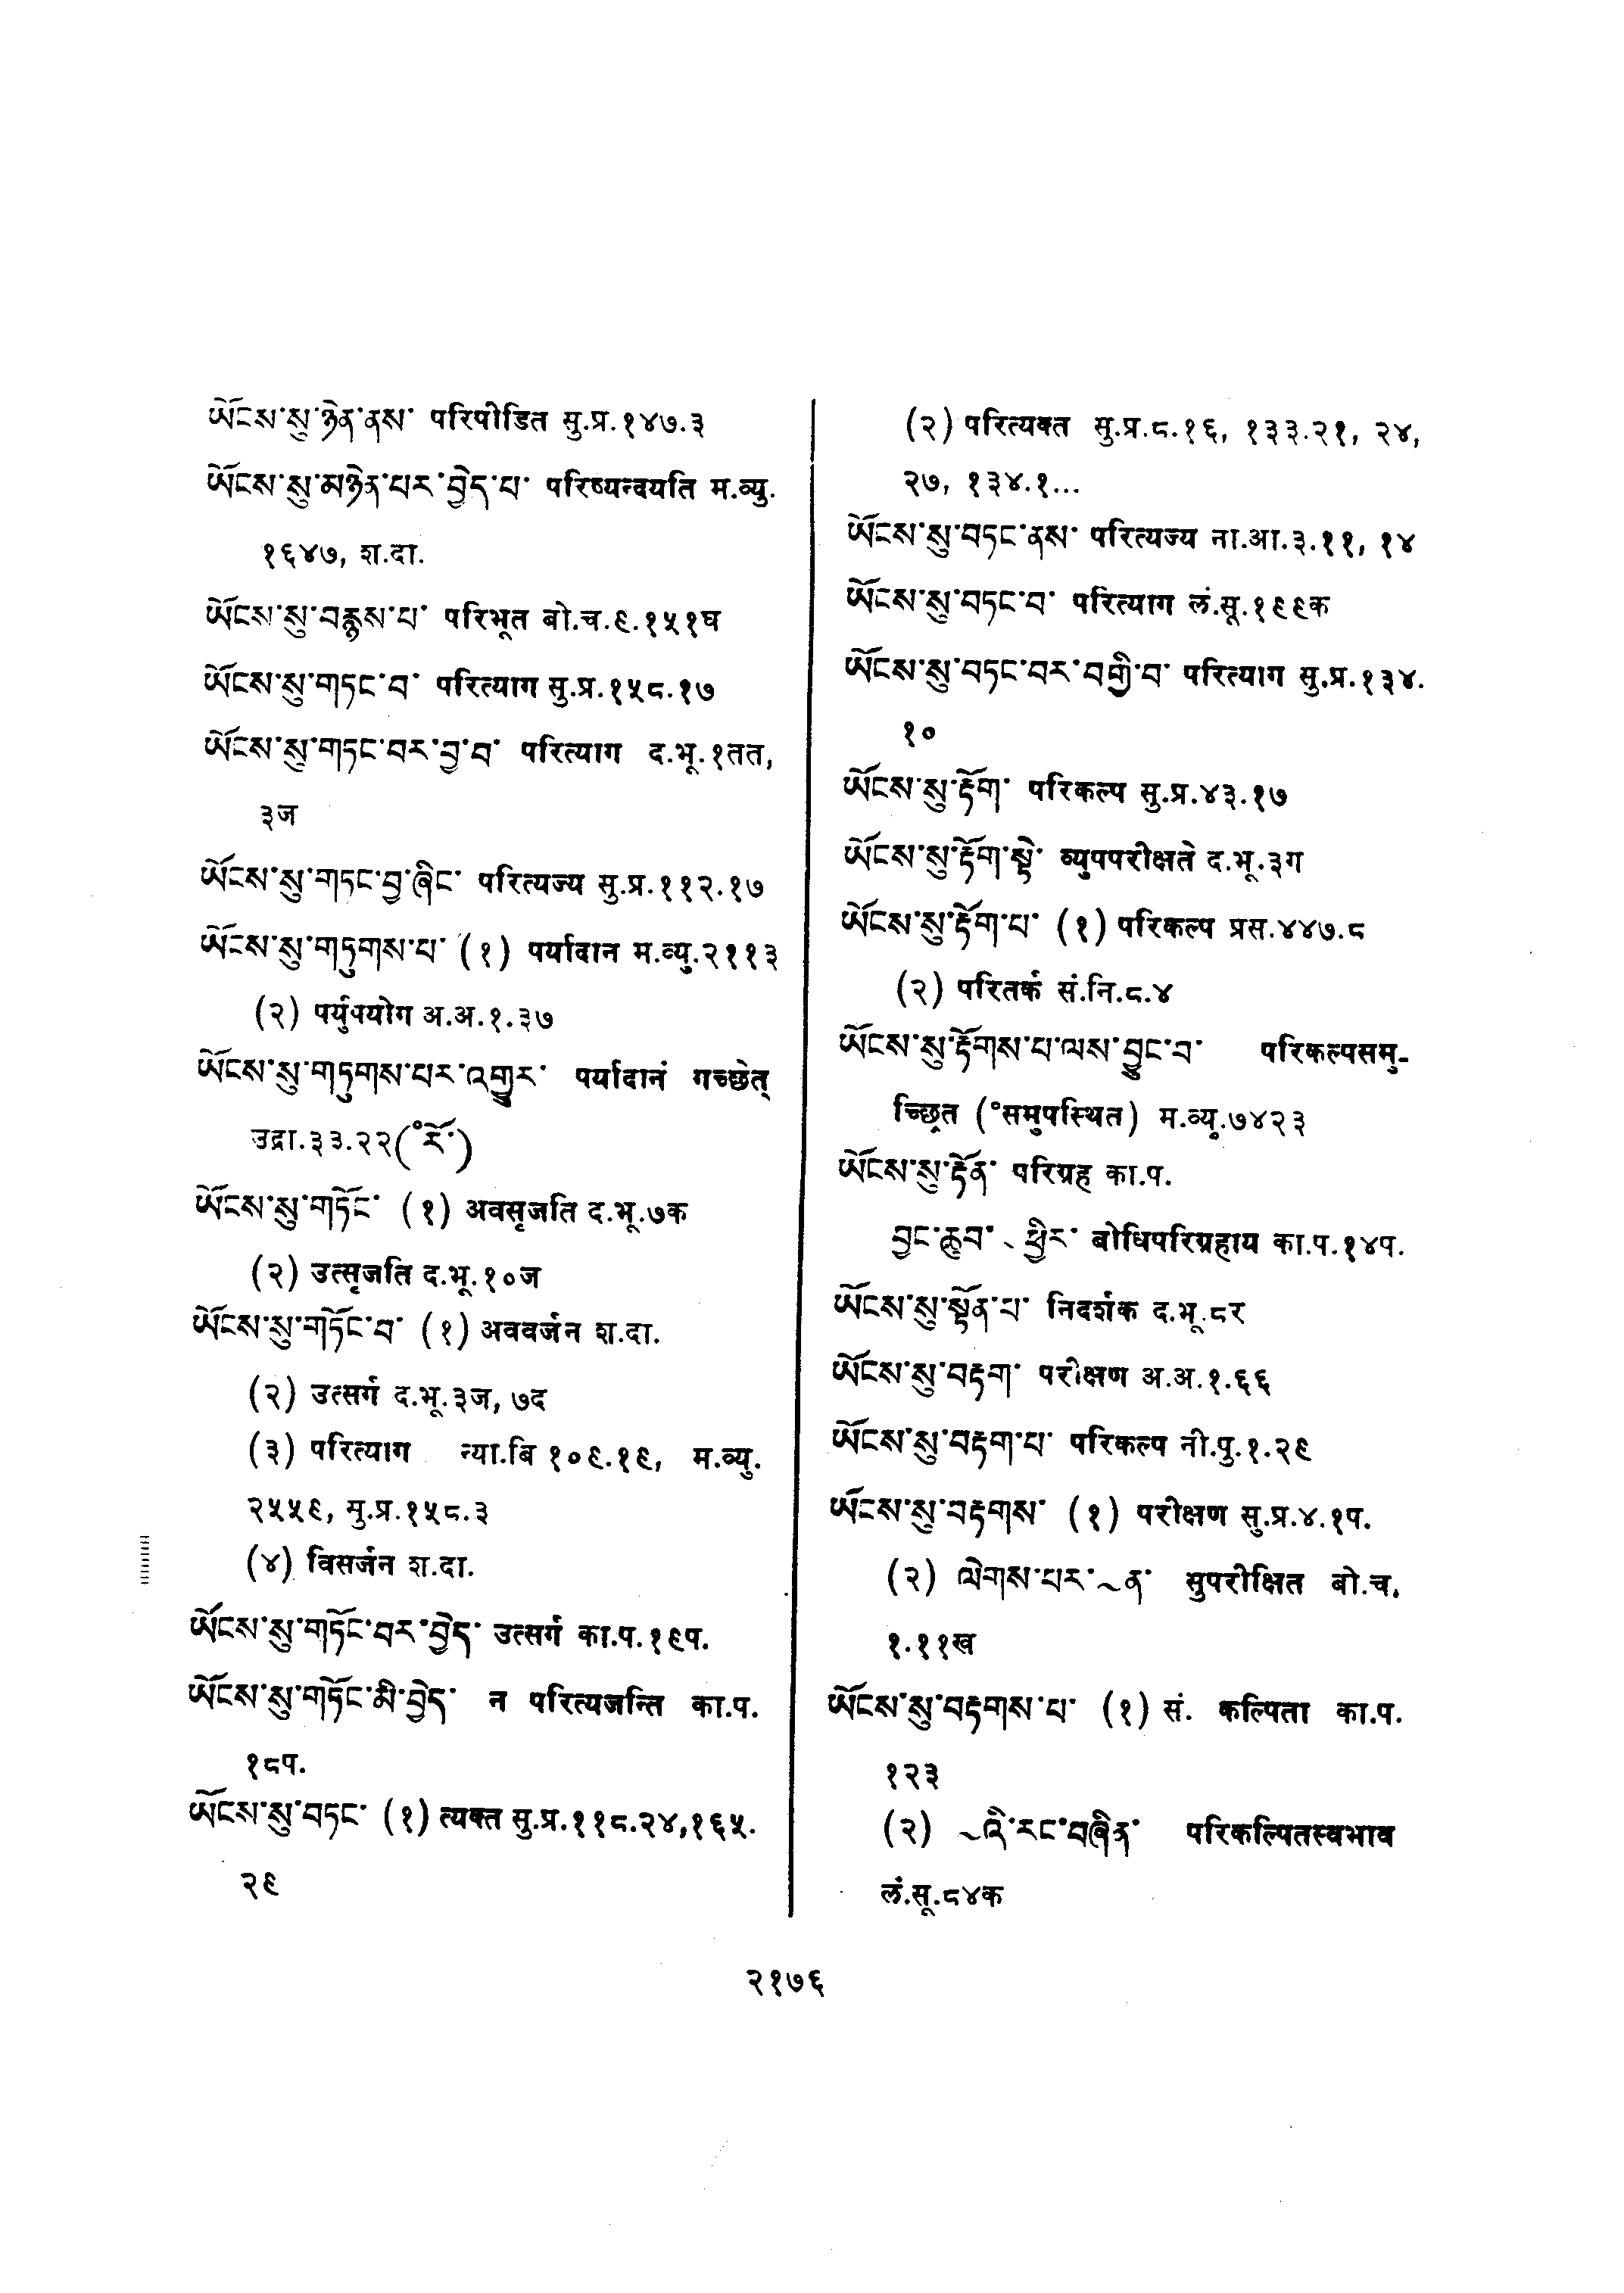 ཡོངས་སུ་ཉེན་ནས་ परिपीडित सु.प्र.१४७.३
ཡོངས་སུ་མཉེན་པར་བྱེད་པ་ परिष्यन्दयति म.व्यु.
१६४७, श.दा.
ཡོངས་སུ་བརྙས་པ་ परिभूत बो.च.९.१५१घ
ཡོངས་སུ་གཏང་བ་ परित्याग सु.प्र.१५८.१७
ཡོངས་སུ་གཏང་བར་བྱ་བ་ परित्याग द.भू.१तत,
३ज
ཡོངས་སུ་གཏང་བྱ་ཞིང་ परित्यज्य सु.प्र.११२.१७
ཡོངས་སུ་གཏུགས་པ་ (१) पर्यादान म.व्यु.२११३
(२) पर्युपयोग अ.अ.१.३७
ཡོངས་སུ་གཏུགས་པར་འགྱུར་ पर्यादानं गच्छेत्
उद्रा.३३.२२(॰རོ་)
ཡོངས་སུ་གཏོང་ (१) अवसृजति द.भू.७क
(२) उत्सृजति द.भू.१०ज
ཡོངས་སུ་གཏོང་བ་ (१) अववर्जन श.दा.
(२) उत्सर्ग द.भू.३ज, ७द
(३) परित्याग न्या.बि १०९.१९, म.व्यु.
२५५९, सु.प्र.१५८.३
(४) विसर्जन श.दा.
ཡོངས་སུ་གཏོང་བར་བྱེད་ उत्सर्ग का.प.१९प.
ཡོངས་སུ་གཏོང་མི་བྱེད་ न परित्यजन्ति का.प.
१८प.
ཡོངས་སུ་བཏང་ (१) त्यक्त सु.प्र.११८.२४,१६५.
२९
(२) परित्यक्त सु.प्र.८.१६, १३३.२१, २४,
२७, १३४.१...
ཡོངས་སུ་བཏང་ནས་ परित्यज्य ना.आ.३.११, १४
ཡོངས་སུ་བཏང་བ་ परित्याग लं.सू.१९९क
ཡོངས་སུ་བཏང་བར་བགྱི་བ་ परित्याग सु.प्र.१३४.
१०
ཡོངས་སུ་རྟོག་ परिकल्प सु.प्र.४३.१७
ཡོངས་སུ་རྟོག་སྟེ་ व्युपपरीक्षते द.भू.३ग
ཡོངས་སུ་རྟོག་པ་ (१) परिकल्प प्रस.४४७.८
(२) परितर्क सं.नि.८.४
ཡོངས་སུ་རྟོགས་པ་ལས་བྱུང་བ་ परिकल्पसमु-
च्छ्रित (॰समुपस्थित) म.व्यु.७४२३
ཡོངས་སུ་རྟོན་ परिग्रह का.प.
བྱང་ཆུབ་ ~ ཕྱིར་ बोधिपरिग्रहाय का.प.१४प.
ཡོངས་སུ་སྟོན་པ་ निदर्शक द.भू.८र
ཡོངས་སུ་བརྟག་ परीक्षण अ.अ.१.६६
ཡོངས་སུ་བརྟག་པ་ परिकल्प नी.पु.१.२९
ཡོངས་སུ་བརྟགས་ (१) परीक्षण सु.प्र.४.१प.
(२) ལེགས་པར་~ན་ सुपरीक्षित बो.च.
१.११ख
ཡོངས་སུ་བརྟགས་པ་ (१) सं. कल्पिता का.प.
१२३
(२) ~འི་རང་བཞིན་ परिकल्पितस्वभाव
लं.सू.८४क
२१७६